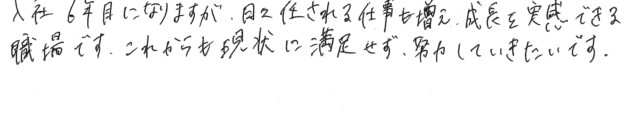 入社6年目になりますが、日々任される仕事も増え、成長を実感できる
職場です。これからも現状に満足せず、努力していきたいです。